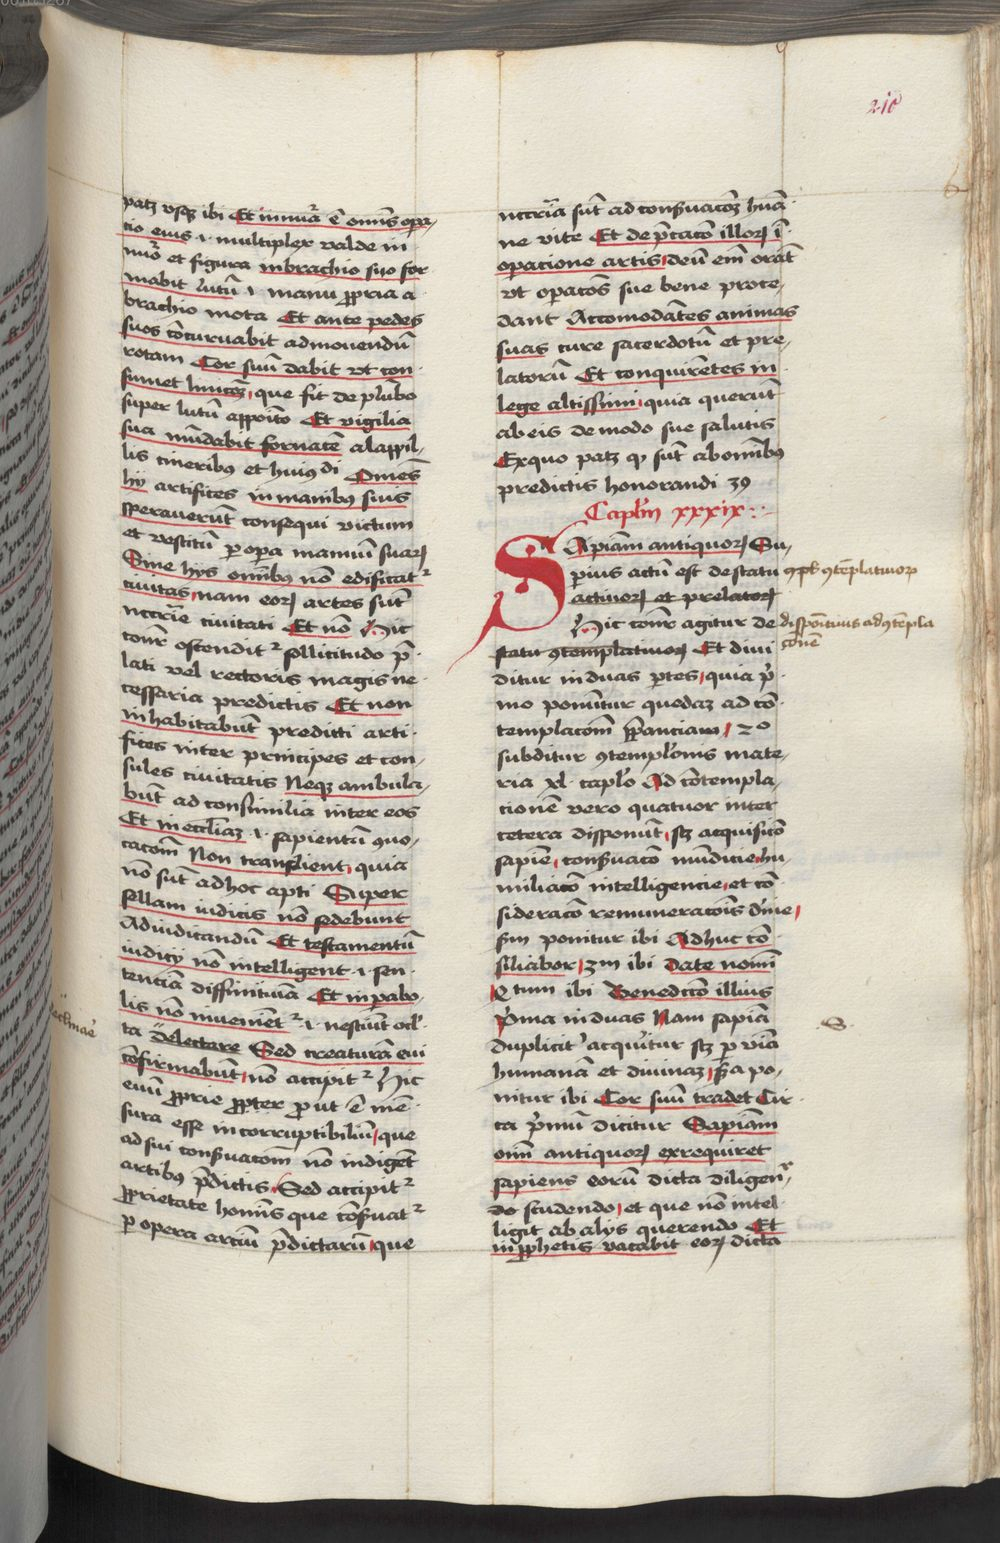 210
patz vsqz ibi Et innūa ē omīs opa
tio eius .i. multiplex valde in
nūo et figura in brachio suo for
mabit lutū .i. manu ppria a
brachio mota Et ante pedes
suos cōcuruabit ad mouendū
rotam Cor suū dabit vt con
sumet que fit de plūbo
super lutū appoīto Et vigilia
sua mūdabit fornacē a lappil
lis cineribus et huiusdi Omēs
hij artifices in manibus suis
sperauerūt consequi victum
et vestitū p opa manuū suaꝝ
Sine hijs omībus nō edificatr
ciuitas nam eoꝝ artes sūt
nccrie ciuitati Et nō Hic
conr ostenditr sollicitudo p
lati vel rectoris magis ne
cessaria predictis Et non
inhabitabūt predicti arti
fices inter principes et con
sules ciuitatis Neqz ambula
būt ad consimilia inter eos
Et in eccliaz .i. sapientū quo
cacōm Non transilient quia
nō sūt ad hoc apti Super
sellam iudicis nō sedebunt
Ad iudicandū Et testamentū
iudicij nō intelligent .i. sen
tenciā diffinitiuā Et in pabo
lis nō inueniētr .i. nesciūt occl
ta delectare Sed creaturā eui
cōfirmabūt nō accipitr hic
euū pprie ppter put ē mē
sura esse incorruptibiliū que
ad sui conseruacōm nō indigēt
artibus pdictis Sed accipitr
pprietate homīs que cōseruatr
p opera arciū pdictarū que
nccria sūt ad conseruacōz hūa
ne vite Et depcacō illoꝝ ī
operacione artis deū em orāt
vt operacōs sue bene proce
dant Accomodātes animas
suas cure sacerdotū et pre
latorū Et conquirētes in
lege altissimi quia querūt
ab eis de modo sue salutis
Ex quo patz qp sūt ab omībus
predictis honorandi 39
Caplm xxxix
Sapiam antiquoꝝ Su
pius actū est de statu
actiuoꝝ et prelatoꝝ
Hic conr agitur de
statu 9templatiuoꝝ Et diui
ditur in duas ptes quia p
mo ponūtur quedaz ad cō
templacōm 2o
subditur 9templōnis mate
ria xl caplo Ad cōtempla
cionē vero quatuor inter
cetera disponūt scz acquisicō
sapiē conseruacō mūdicie hu
miliacō intelligencie et cō
sideracō remuneracōis diuīe
scdm ponitur ibi Adhuc cō
siliabor 3m ibi Date nomī
Qrtum ibi Benedictō illius
Pma in duas Nam sapiā
dupliciter acquiritur scz p viā
humanā et diuinaz scda po
nitur ibi Cor suū tradet Cir
ca pmū dicitur Sapiām
oīm antiquoꝝ exrequiret
sapiens eorū dicta diligen
do studendo et que nō intel
ligit ab alijs querendo Et
in pphetis vacabit eoꝝ dicta
disponentius ad 9templa
cōnē